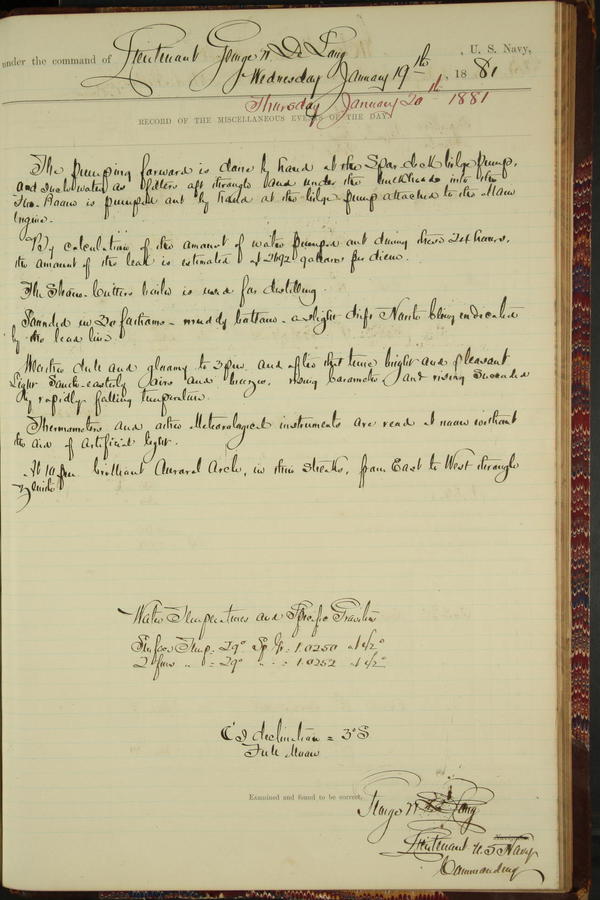 under the command of Lieutenant George W. De Long, U. S. Navy,
Wednesday January 19th, 1881
Thursday January 20th 1881
RECORD OF THE MISCELLANEOUS EVENTS OF THE DAY.
The pumping forward is done by hand at the Spar deck bilge pump,
and such water as filters aft through and under the bulkheads into the
Fire Room is pumped out by hand at the bilge pump attached to the Main
Engine.
By calculation of the amount of water pumped out during these 24 hours,
the amount of the leak is estimated at 2692 gallons per diem.
The Steam Cutters boiler is used for distilling.
Sounded in fathoms - muddy bottom - a slight drift North being indicated
by the lead line.
Weather dull and gloomy to 3 p.m. and after that time bright and pleasant
Light South-easterly airs and breezes, rising barometer and rising succeeded
by rapidly falling temperature.
Thermometers and other Meteorological instruments are read at noon without
the aid of artificial light.
At 10 p.m. brilliant Auroral Arch, in thin streaks, from East to West through
Zenith
Water Temperatures and Specific Gravities
Surface Temp. = 29° Sp Gr = 1.0250 at 61/2°
2 fms " = 29° " " = 1.0252 at 61/2°
C's declination = 3° S
Full Moon
Examined and found to be correct.
George W. De Long
Navigator.
Lieutenant U. S. Navy
Commanding